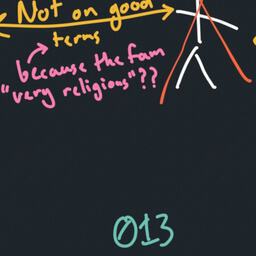 Not on good
terms
because the fam
"very religious"??
013